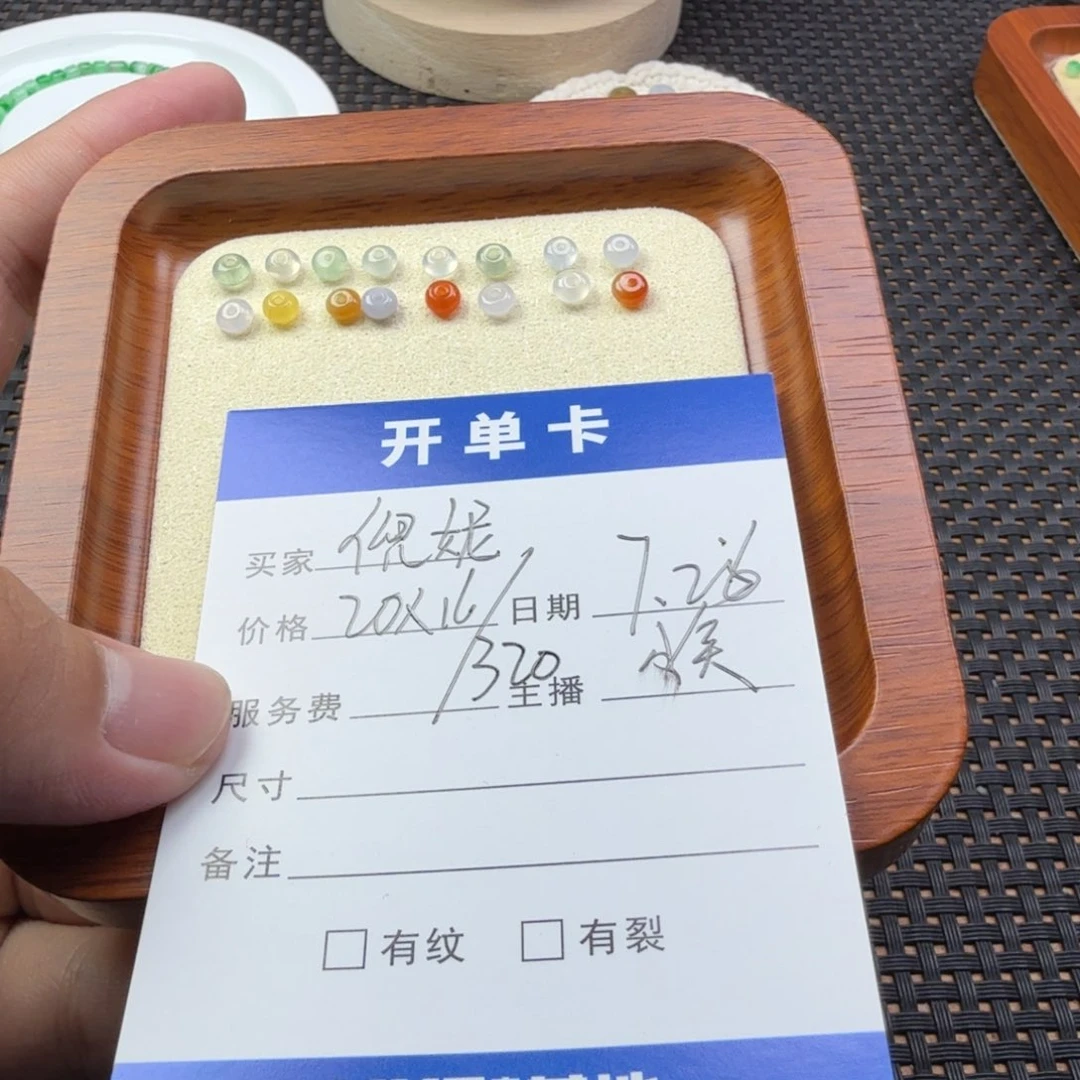 开单卡
买家 倪妮
价格 20X16 日期 7.26
服务费 320 主播
尺寸
备注
□ 有纹 □ 有裂